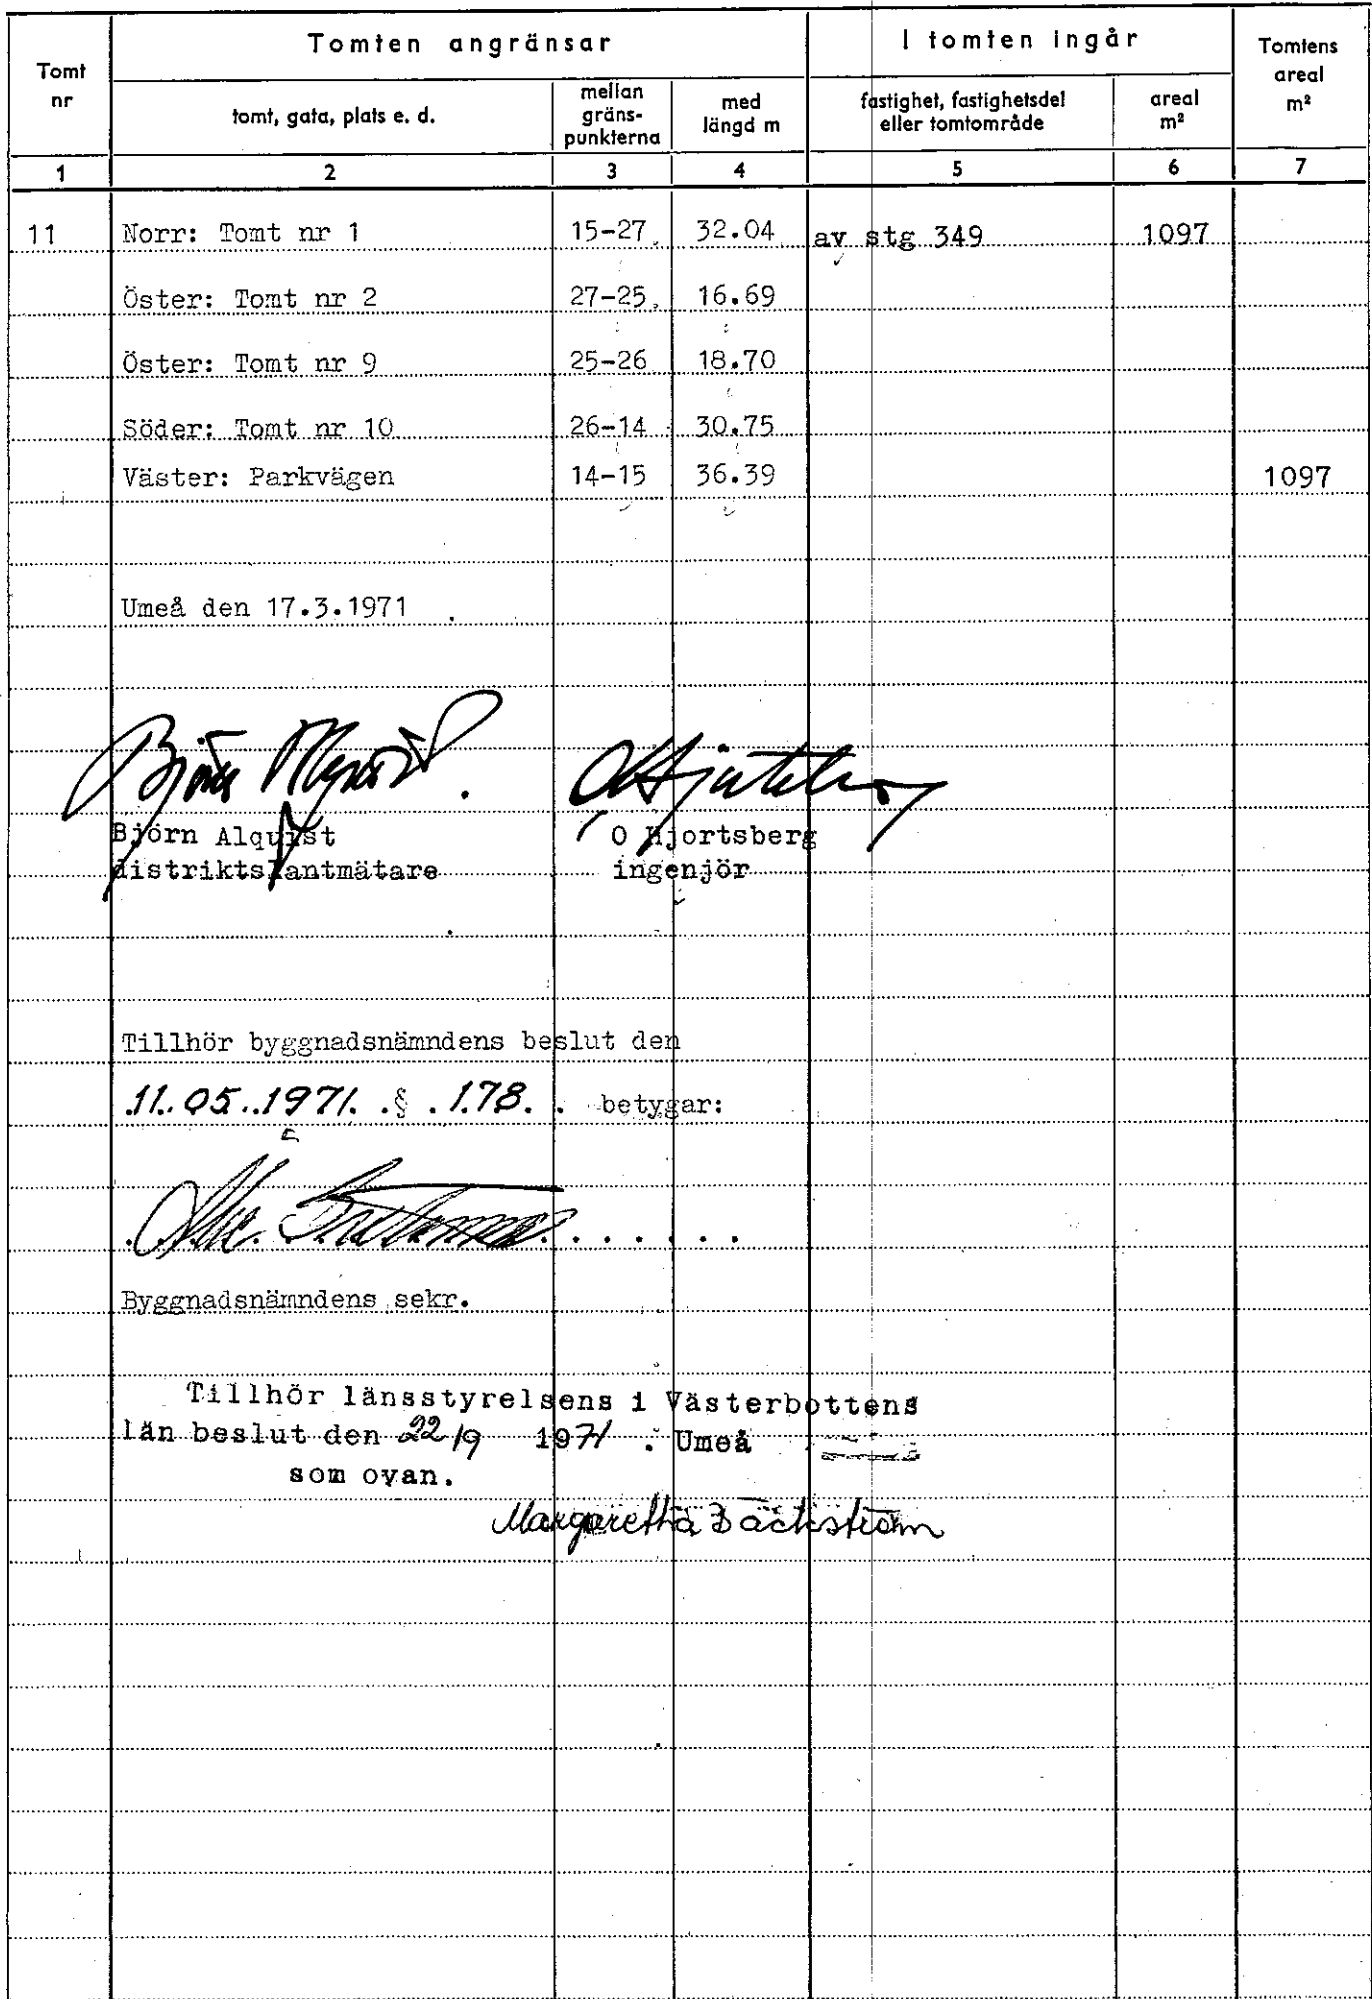 Tomt nr
Tomten angränsar
I tomten ingår
Tomtens areal m²
tomt, gata, plats e. d.
mellan gräns-punkterna
med längd m
fastighet, fastighetsdel eller tomtområde
areal m²
1 2 3 4 5 6 7
11 Norr: Tomt nr 1 15-27 32.04 av stg 349 1097
Öster: Tomt nr 2 27-25 16.69
Öster: Tomt nr 9 25-26 18.70
Söder: Tomt nr 10 26-14 30.75
Väster: Parkvägen 14-15 36.39 1097
Umeå den 17.3.1971
Björn Alquist
O Hjortsberg
distriktslantmätare
ingenjör
Tillhör byggnadsnämndens beslut den
11.05.1971. § .178. . betygar:
Byggnadsnämndens sekr.
Tillhör länsstyrelsens i Västerbottens
län beslut den 22/9 1971 . Umeå
som ovan.
Margaretha Bäckström